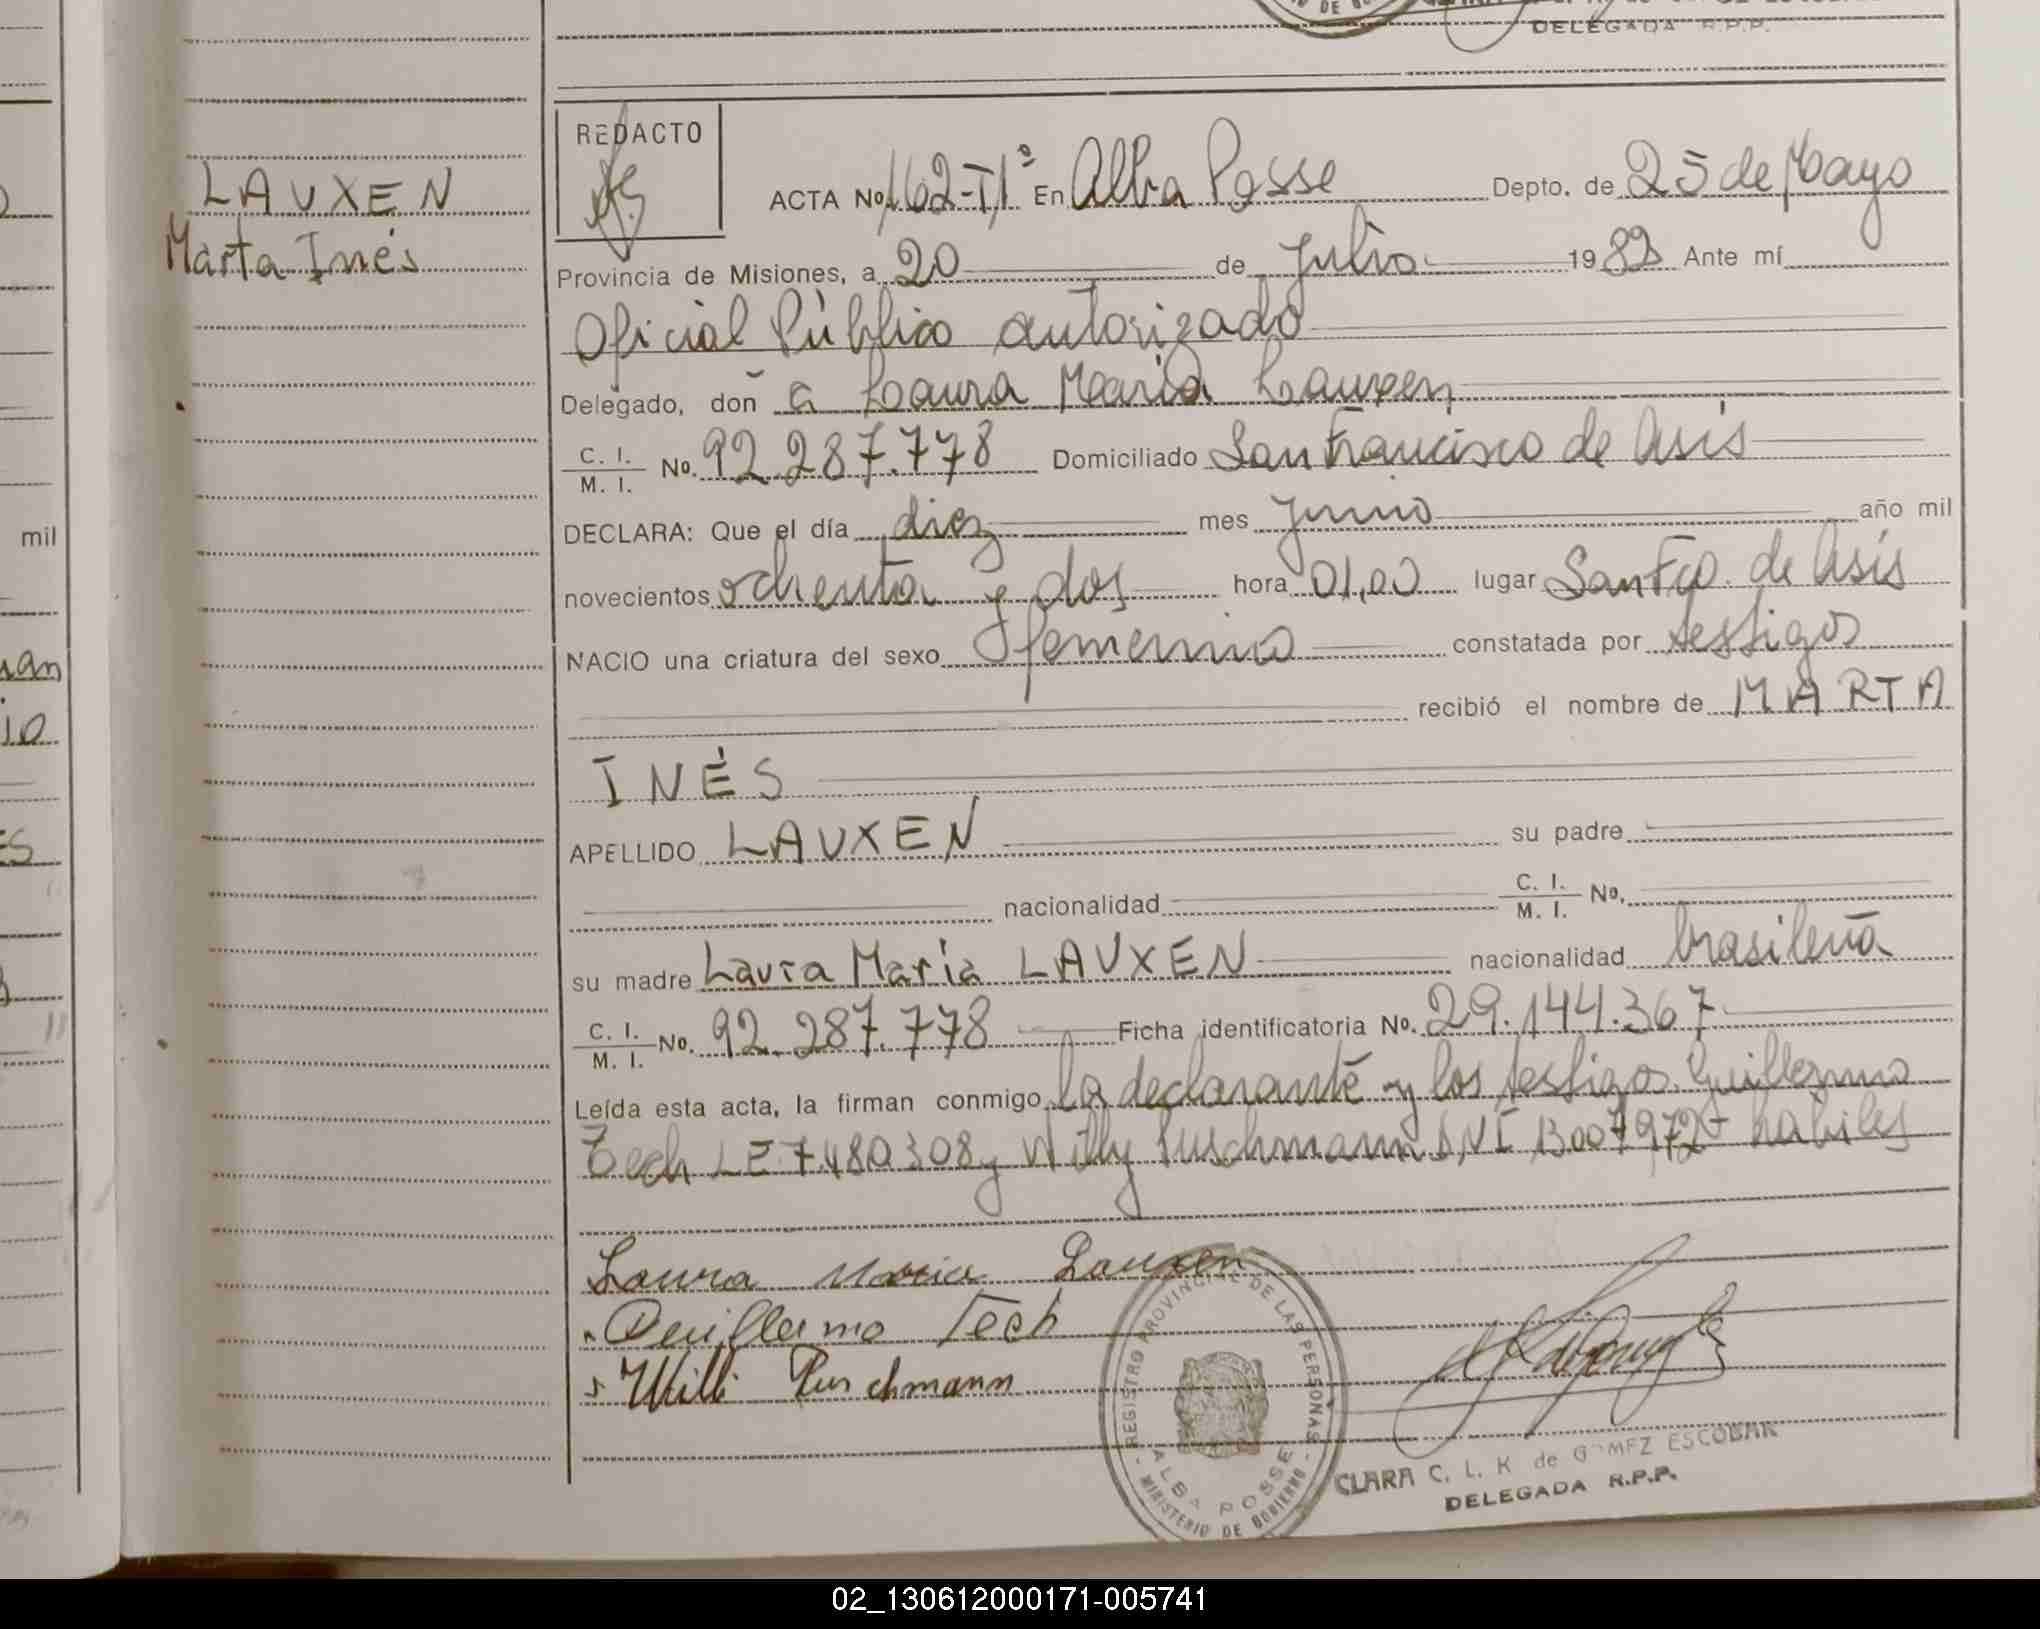 DELEGADA R.P.P.
LAUXEN
Marta Inés
REDACTO
ACTA No 162-TIº En Alba Posse Depto. de 25 de Mayo
Provincia de Misiones, a 20 de Julio 1982 Ante mí
Oficial Público autorizado
Delegado, don a Laura Maria Lauxen
C. I. / M. I. No. 92.287.778 Domiciliado San Francisco de Asis
DECLARA: Que el día diez mes Junio año mil
novecientos ochenta y dos hora 01,00 lugar San Fco. de Asis
NACIO una criatura del sexo femenino constatada por testigos
recibió el nombre de MARTA
INÉS
APELLIDO LAUXEN su padre
nacionalidad C. I. / M. I. No.
su madre Laura Maria LAUXEN nacionalidad brasileña
C. I. / M. I. No. 92.287.778 Ficha identificatoria No. 29.144.367
Leída esta acta, la firman conmigo la declarante y los testigos Guillermo
Tech LE 7.480.308 y Willy Puschmann DNI 13.007.972 habiles
Laura Maria Lauxen
Guillermo Tech
Willi Puschmann
REGISTRO PROVINCIAL DE LAS PERSONAS
ALBA POSSE
MINISTERIO DE GOBIERNO
CLARA C. L. K de GOMEZ ESCOBAR
DELEGADA R.P.P.
mil
02_130612000171-005741